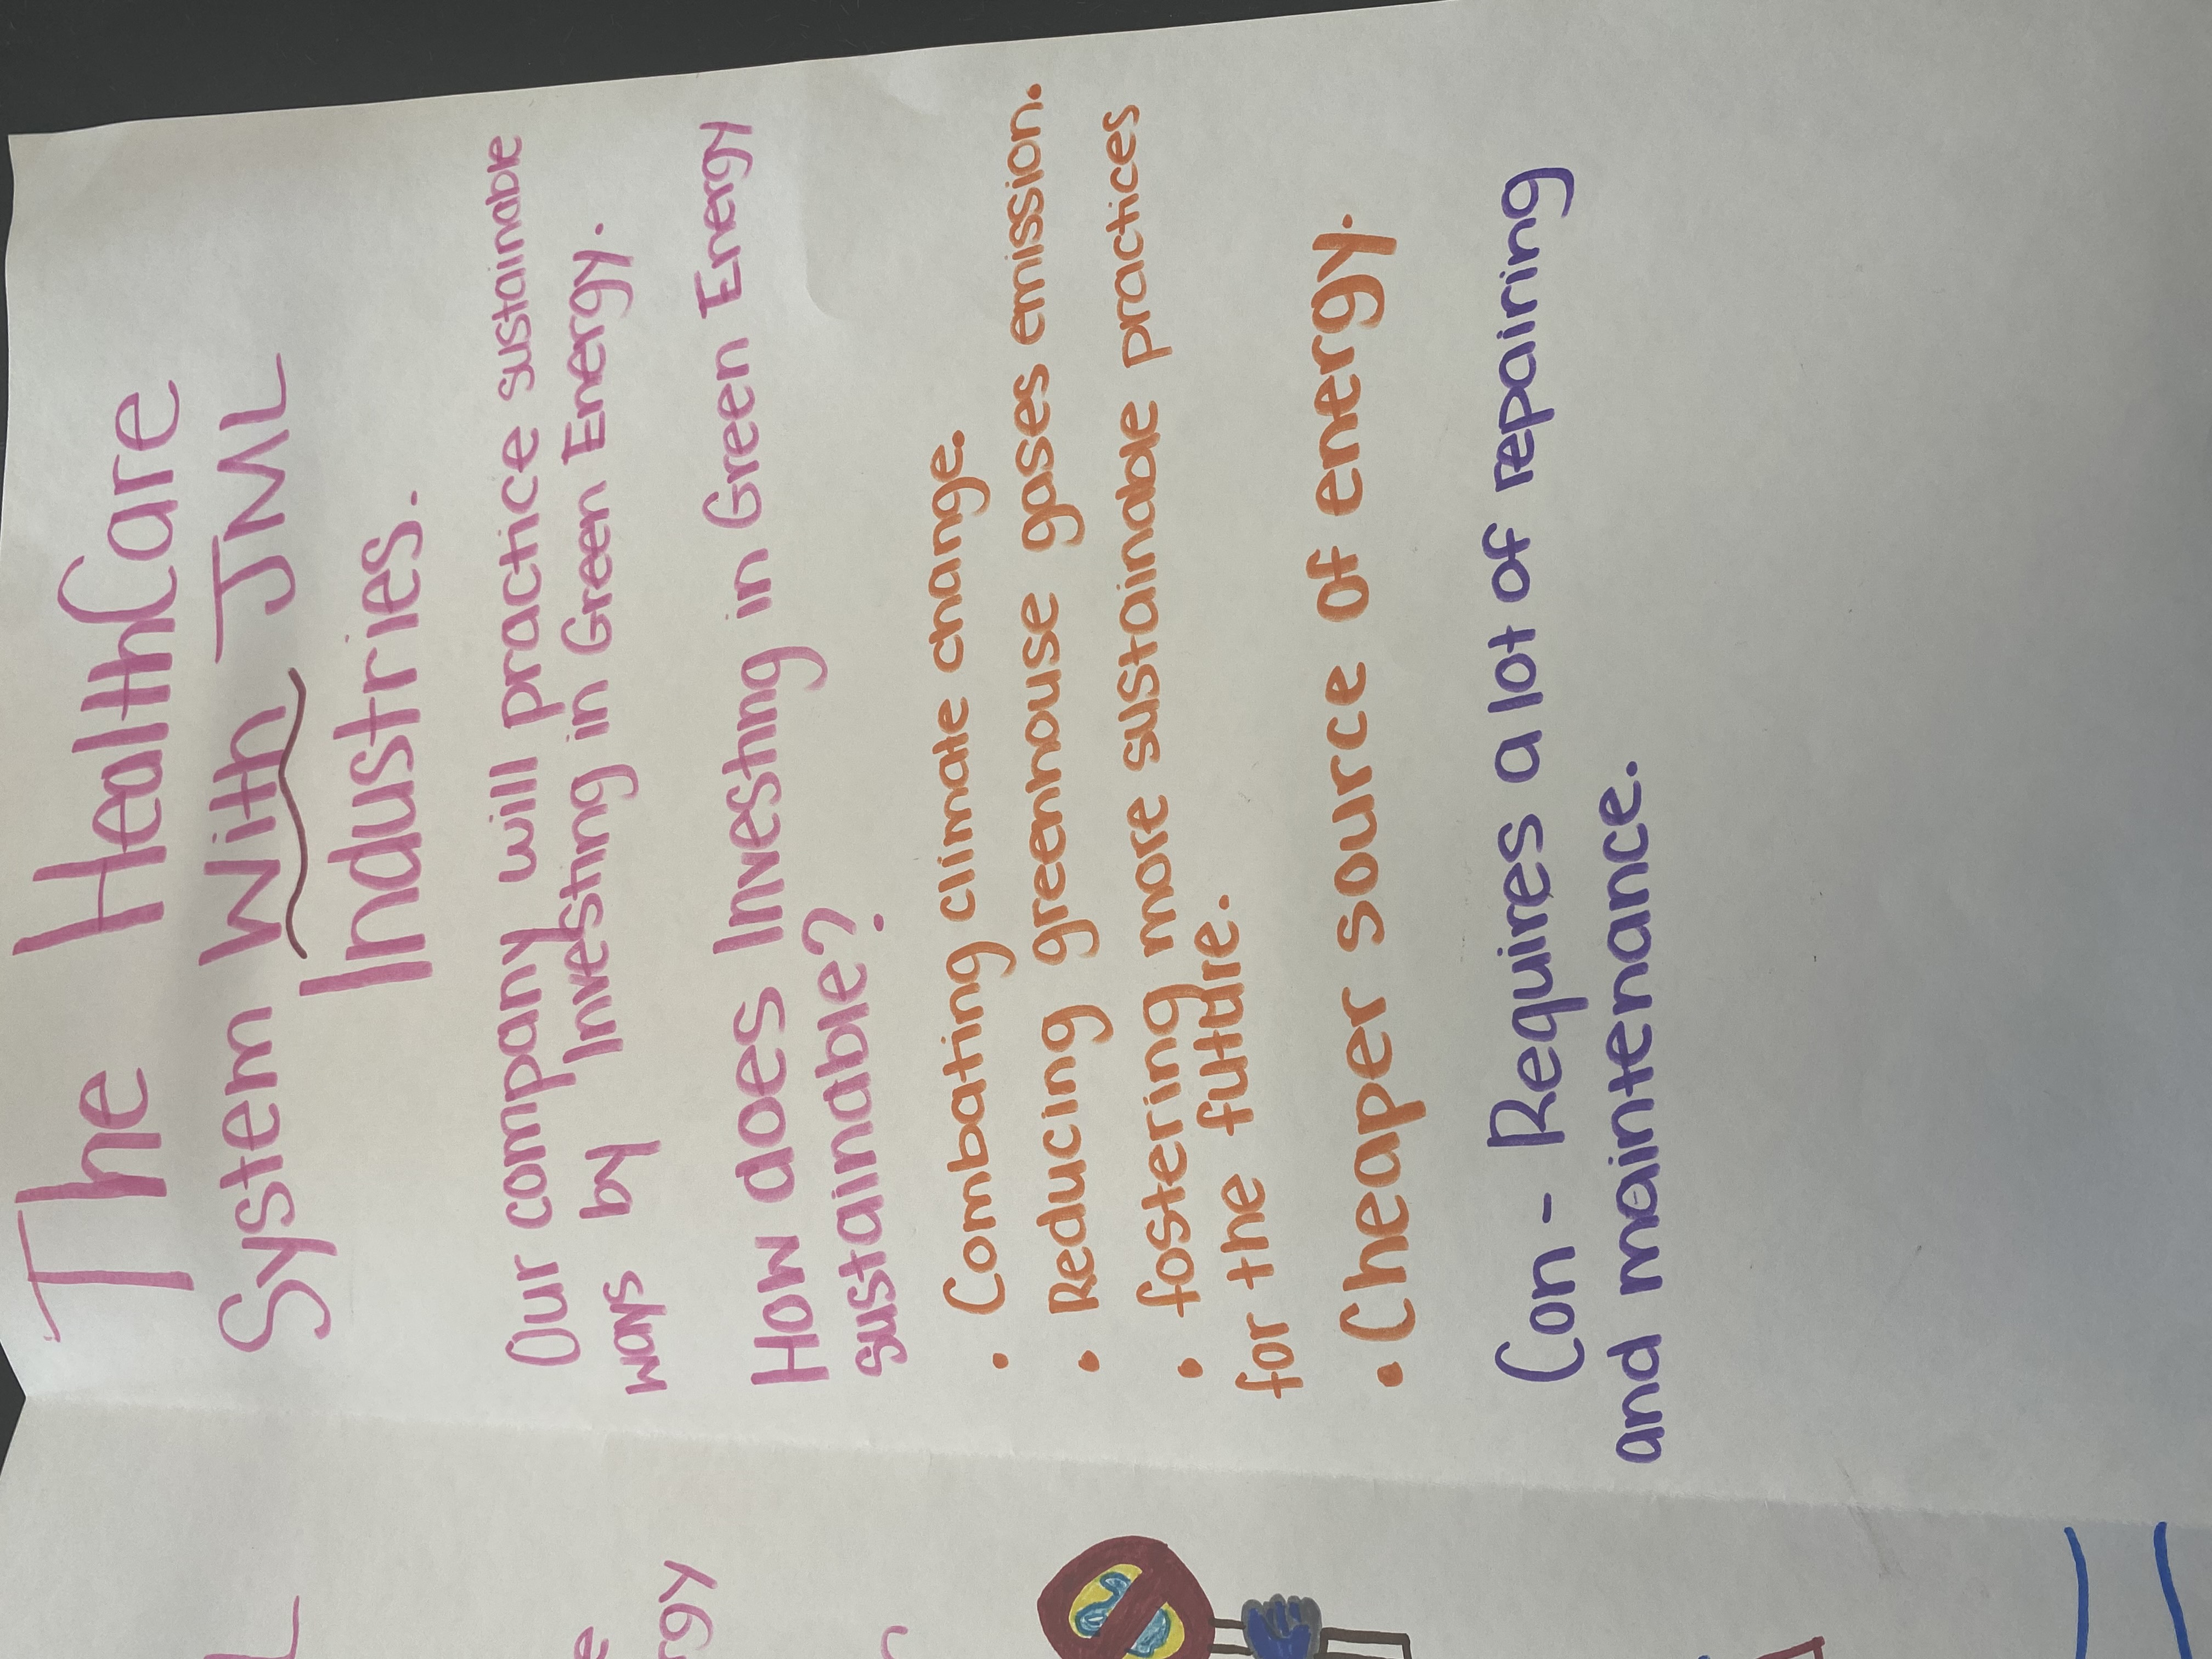 The HealthCare
System With JML
Industries.
Our company will practice sustainable
ways by Investing in Green Energy.
How does Investing in Green Energy
sustainable?
• Combating climate change.
• Reducing greenhouse gases emission.
• fostering more sustainable practices
for the future.
• Cheaper source of energy.
Con - Requires a lot of repairing
and maintenance.